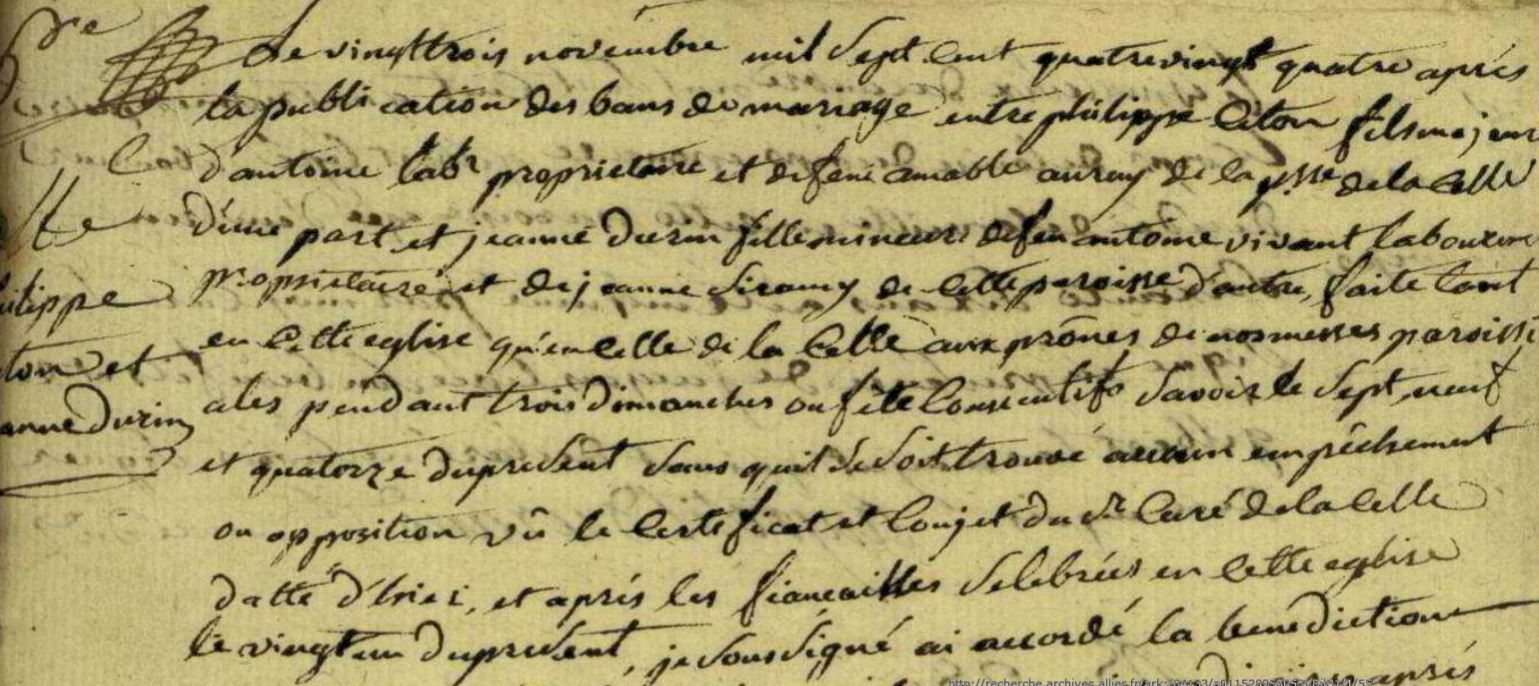 Le vingttrois novembre mil sept cent quatrevingt quatre après
la publication des bans de mariage entre philippe Citon fils majeur
d'antoine lab^r proprietaire et de feue amable auray de la p.sse de la Celle
d'une part et jeanne Durin fille mineure de feu antoine vivant laboureur
proprietaire et de jeanne Siramy de cette paroisse d'autre, faite tant
en cette eglise qu'en celle de la Celle aux prônes de nos messes paroissi
ales pendant trois dimanches ou fête consecutifs savoir le sept, neuf
et quatorze du present sans quil se soit trouvé aucun empêchement
ou opposition vû le certificat et conjet du s^r Curé de la Celle
datté d'hier, et après les fiancailles selebrées en cette eglise
le vingt un du present, je soussigné ai accordé la benediction
après
philippe
ton et
anne Durin
http://recherche.archives.allier.fr/ark: